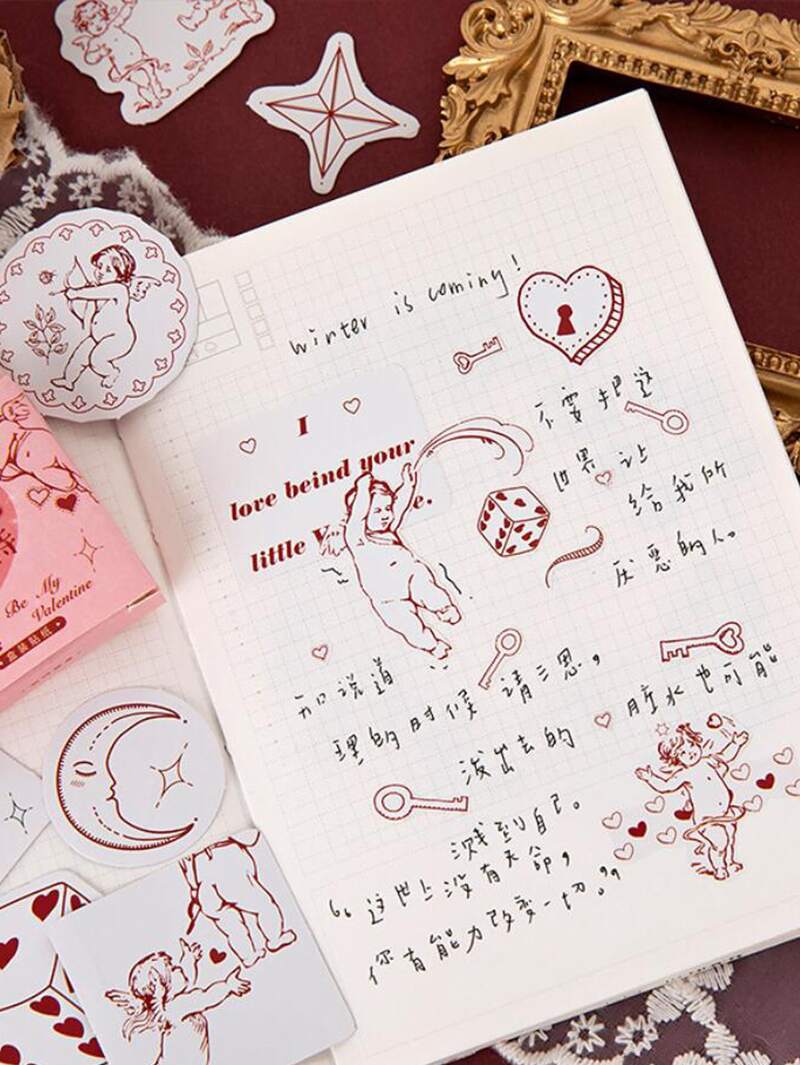 winter is coming!
I
love beind your
little
不要把这
世界让
给我所
厌恶的人。
说道
理的时候 请三思，
泼出去的 脏水也可能
溅到自己。
“这世上没有天命，
你有能力改变一切。”
Be My
Valentine
盒装贴纸